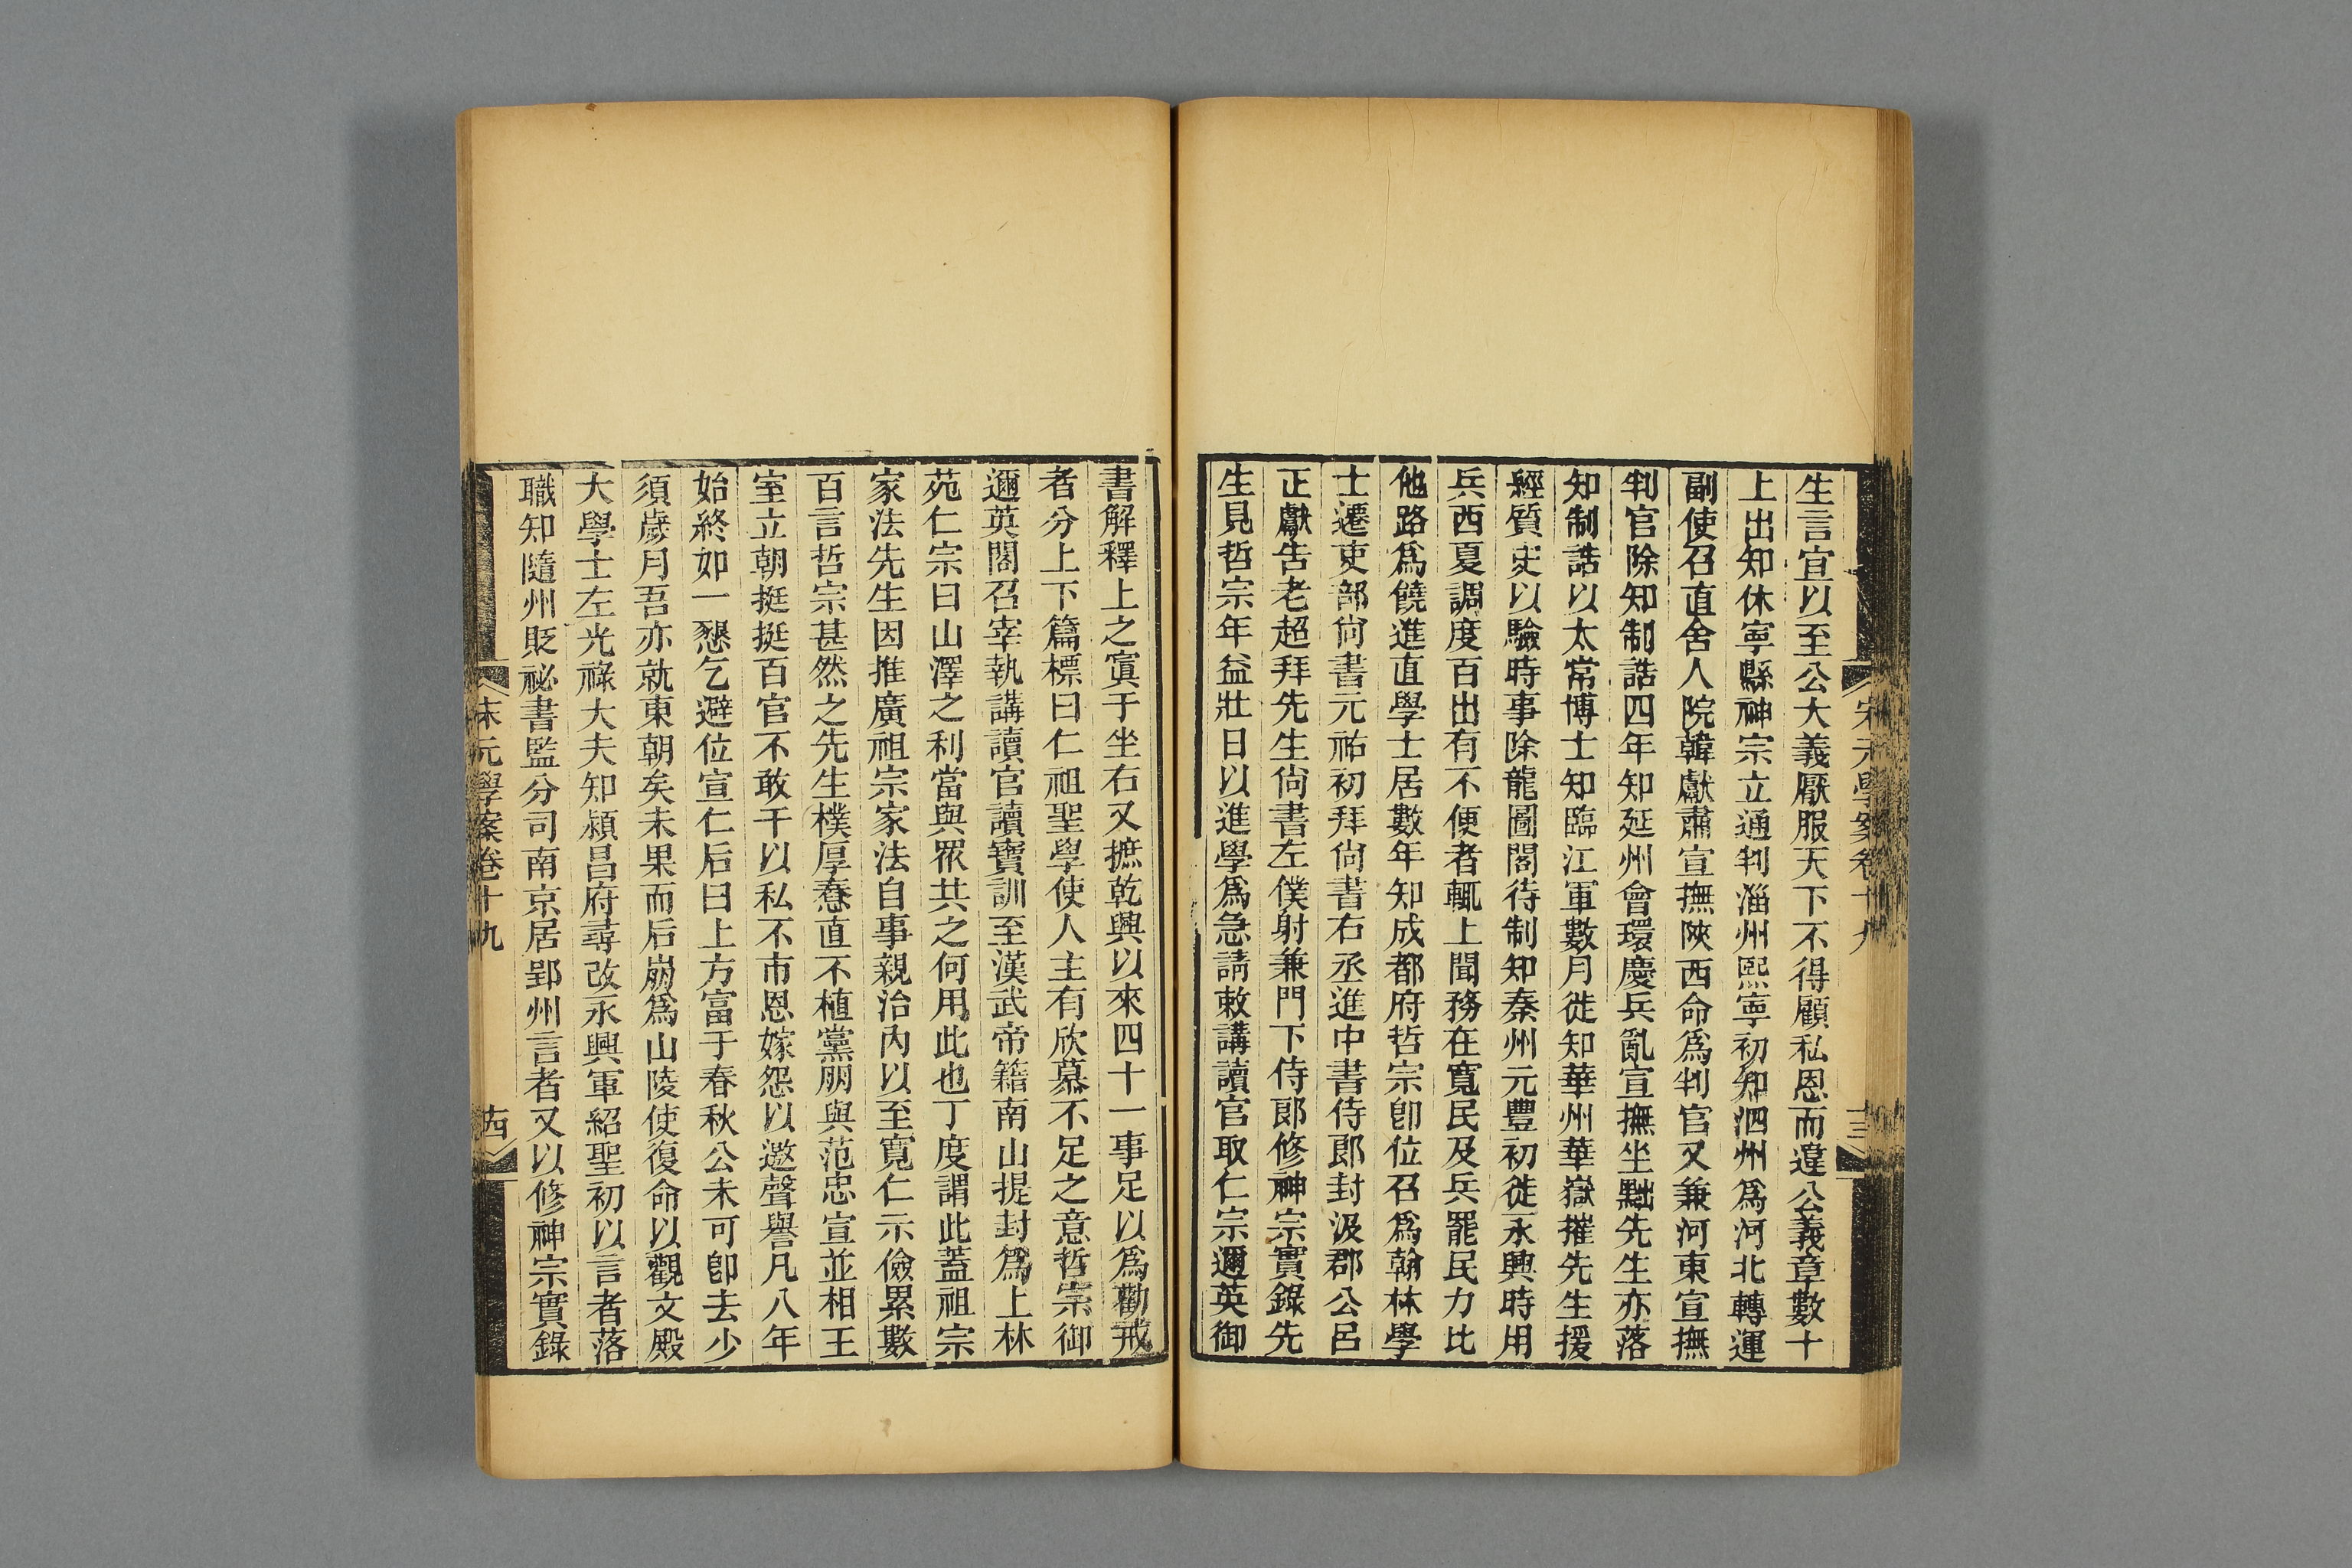 宋元學案卷十九
十三
生言宣以至公大義厭服天下不得顧私恩而違公義章數十
上出知休寧縣神宗立通判淄州熙寧初知泗州爲河北轉運
副使召直舍人院韓獻肅宣撫陝西命爲判官又兼河東宣撫
判官除知制誥四年知延州會環慶兵亂宣撫坐黜先生亦落
知制誥以太常博士知臨江軍數月徙知華州華嶽摧先生援
經質史以驗時事除龍圖閣待制知秦州元豐初徙永興時用
兵西夏調度百出有不便者輒上聞務在寬民及兵罷民力比
他路爲饒進直學士居數年知成都府哲宗卽位召爲翰林學
士遷吏部尙書元祐初拜尙書右丞進中書侍郎封汲郡公呂
正獻吿老超拜先生尙書左僕射兼門下侍郎修神宗實錄先
生見哲宗年益壯日以進學爲急請敕講讀官取仁宗邇英御
書解釋上之寘于坐右又摭乾興以來四十一事足以爲勸戒
者分上下篇標曰仁祖聖學使人主有欣慕不足之意哲宗御
邇英閣召宰執講讀官讀寶訓至漢武帝籍南山提封爲上林
苑仁宗曰山澤之利當與眾共之何用此也丁度謂此蓋祖宗
家法先生因推廣祖宗家法自事親治內以至寬仁示儉累數
百言哲宗甚然之先生樸厚惷直不植黨朋與范忠宣並相王
室立朝挺挺百官不敢干以私不市恩嫁怨以邀聲譽凡八年
始終如一懇乞避位宣仁后曰上方富于春秋公未可卽去少
須歲月吾亦就東朝矣未果而后崩爲山陵使復命以觀文殿
大學士左光祿大夫知潁昌府尋改永興軍紹聖初以言者落
職知隨州貶祕書監分司南京居郢州言者又以修神宗實錄
宋元學案卷十九
十四